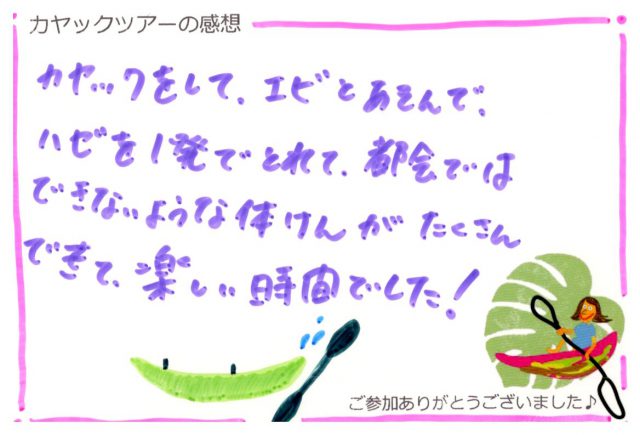 カヤックツアーの感想
カヤックをして、エビとあそんで、
ハゼを1発でとれて、都会では
できないような体けんがたくさん
できて、楽しい時間でした!
ご参加ありがとうございました♪